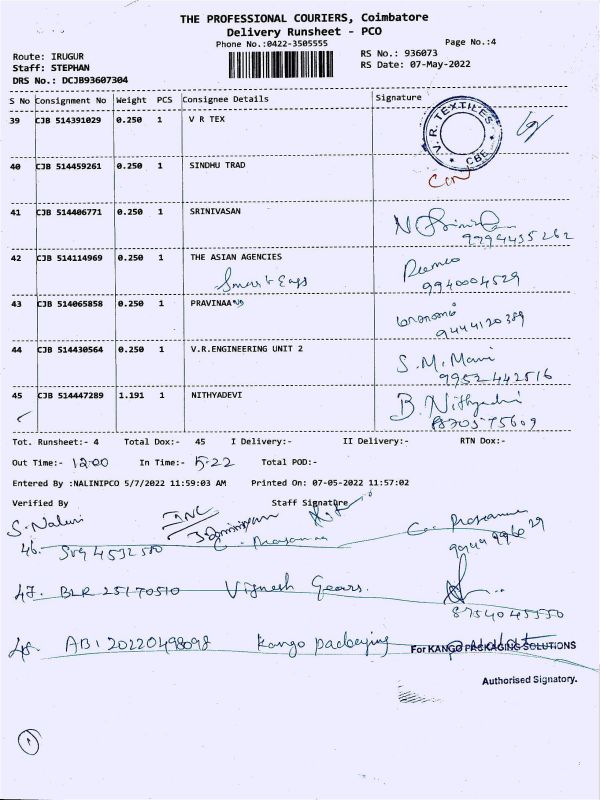 THE PROFESSIONAL COURIERS, Coimbatore
Delivery Runsheet - PCO
Phone No.:0422-3505555 Page No.:4
Route: IRUGUR RS No.: 936073
Staff: STEPHAN RS Date: 07-May-2022
DRS No.: DCJB93607304
S No Consignment No Weight PCS Consignee Details Signature
39 CJB 514391029 0.250 1 V R TEX
V.R. TEXTILES
CBE
40 CJB 514459261 0.250 1 SINDHU TRAD
41 CJB 514406771 0.250 1 SRINIVASAN
9994435262
42 CJB 514114969 0.250 1 THE ASIAN AGENCIES
9940004529
43 CJB 514065858 0.250 1 PRAVINAA
9444120389
44 CJB 514430564 0.250 1 V.R.ENGINEERING UNIT 2 S.M.Mani
9952442516
45 CJB 514447289 1.191 1 NITHYADEVI B. Nithyadevi
Tot. Runsheet:- 4 Total Dox:- 45 I Delivery:- II Delivery:- RTN Dox:-
Out Time:- 12:00 In Time:- 5:22 Total POD:-
Entered By :NALINIPCO 5/7/2022 11:59:03 AM Printed On: 07-05-2022 11:57:02
Verified By Staff Signature
S. Nalini
46.
47. BLR 25170510 Vignesh Gears.
8754045550
48. ABI 20220498098 Kango packaging For KANGO PACKAGING SOLUTIONS
Authorised Signatory.